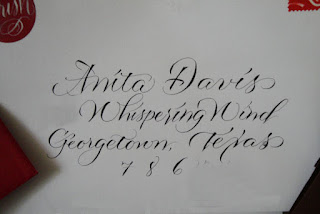 Anita Davis
Whispering Wind
Georgetown, Texas
7 8 6